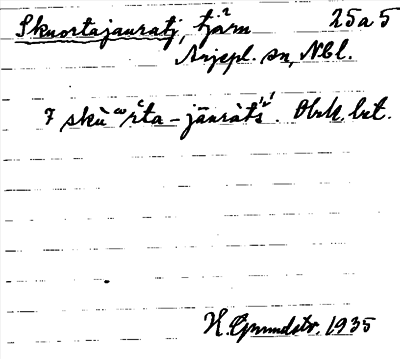 Skuortajauratj, tjärn 25a5
Arjepl. sn, Nbl.
7 skùωrʽta-jàuràtś. Obek. bet.
H. Grundstr. 1935